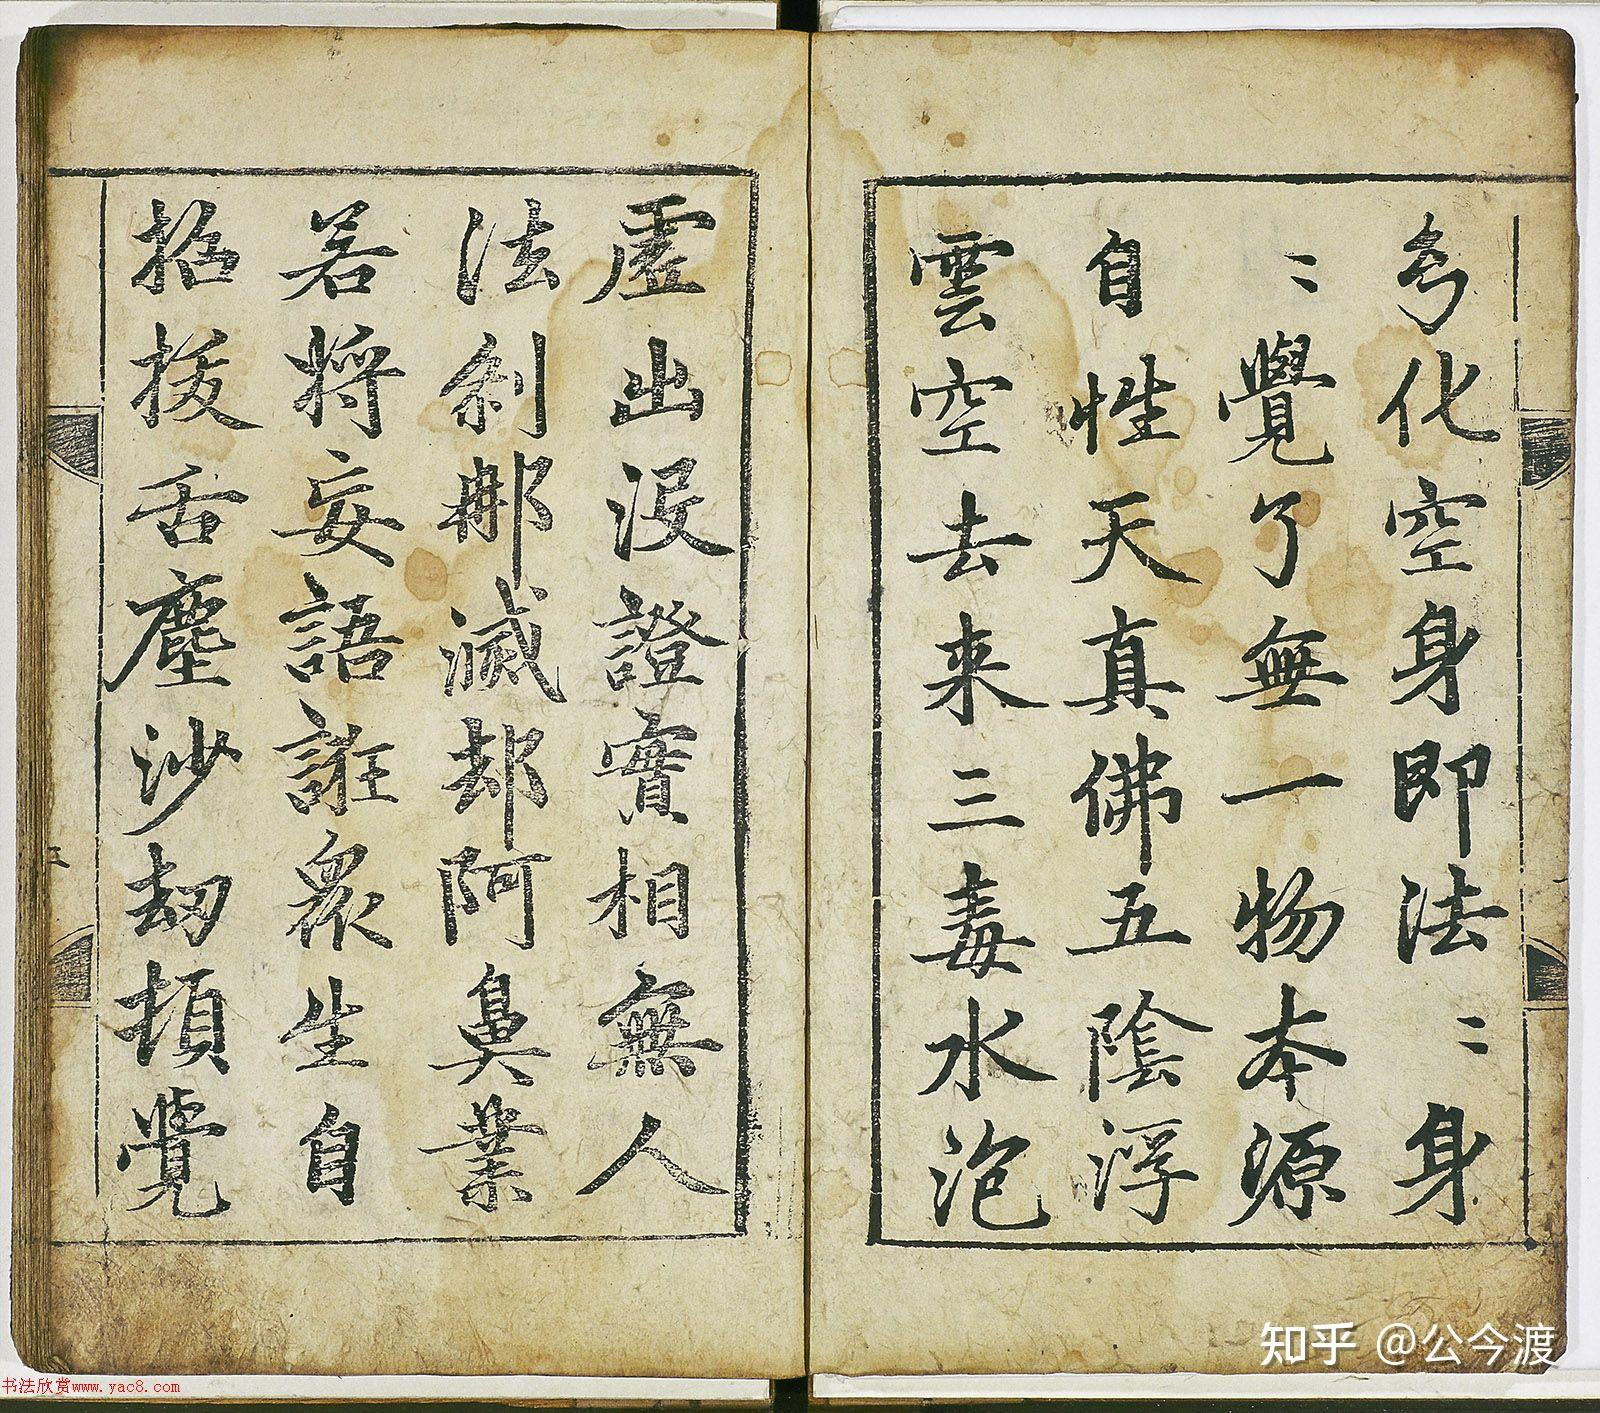 𠃔化空身即法〻身
〻覺了無一物本源
自性天真佛五陰浮
雲空去來三毒水泡
虛出沒證實相無人
法刹那滅却阿鼻業
若将妄語誑衆生自
招拔舌塵沙劫頓覺
三
知乎 @公今渡
书法欣赏www.yac8.com